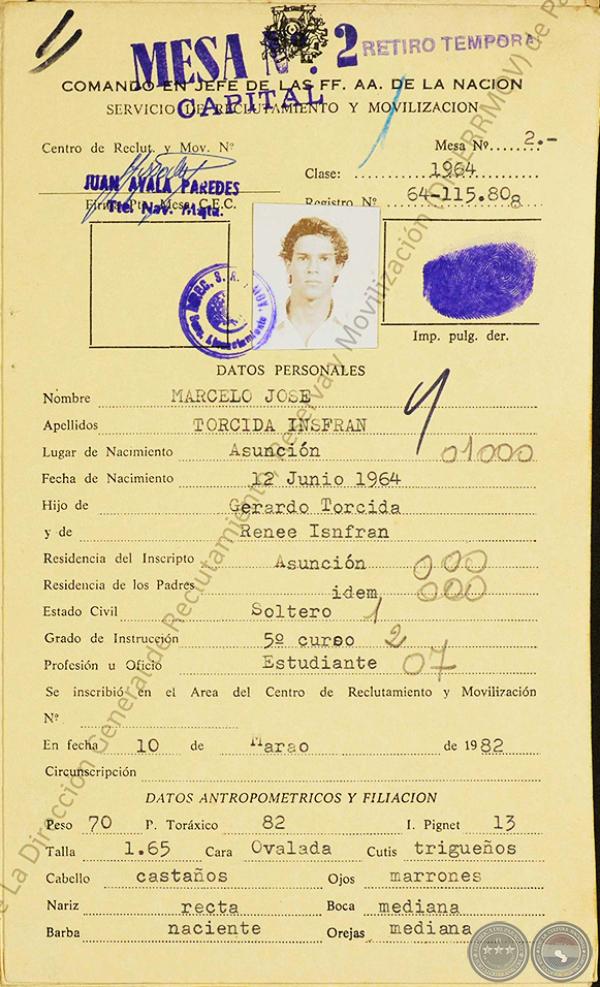 MESA Nº. 2 RETIRO TEMPORA
COMANDO EN JEFE DE LAS FF. AA. DE LA NACION
CAPITAL
SERVICIO DE RECLUTAMIENTO Y MOVILIZACION
Centro de Reclut. y Mov. Nº
Mesa Nº 2.-
Clase: 1964
JUAN AYALA PAREDES
Registro Nº 64-115.808
Firma Pte. Mesa C.E.C.
Tte. Nav. Mqta.
Imp. pulg. der.
DATOS PERSONALES
Nombre MARCELO JOSE
Apellidos TORCIDA INSFRAN
Lugar de Nacimiento Asunción 01000
Fecha de Nacimiento 12 Junio 1964
Hijo de Gerardo Torcida
y de Renee Isnfran
Residencia del Inscripto Asunción 000
Residencia de los Padres idem 000
Estado Civil Soltero 1
Grado de Instrucción 5º curso 2
Profesión u Oficio Estudiante 07
Se inscribió en el Area del Centro de Reclutamiento y Movilización
Nº
En fecha 10 de Marao de 1982
Circunscripción
DATOS ANTROPOMETRICOS Y FILIACION
Peso 70 P. Toráxico 82 I. Pignet 13
Talla 1.65 Cara Ovalada Cutis trigueños
Cabello castaños Ojos marrones
Nariz recta Boca mediana
Barba naciente Orejas mediana